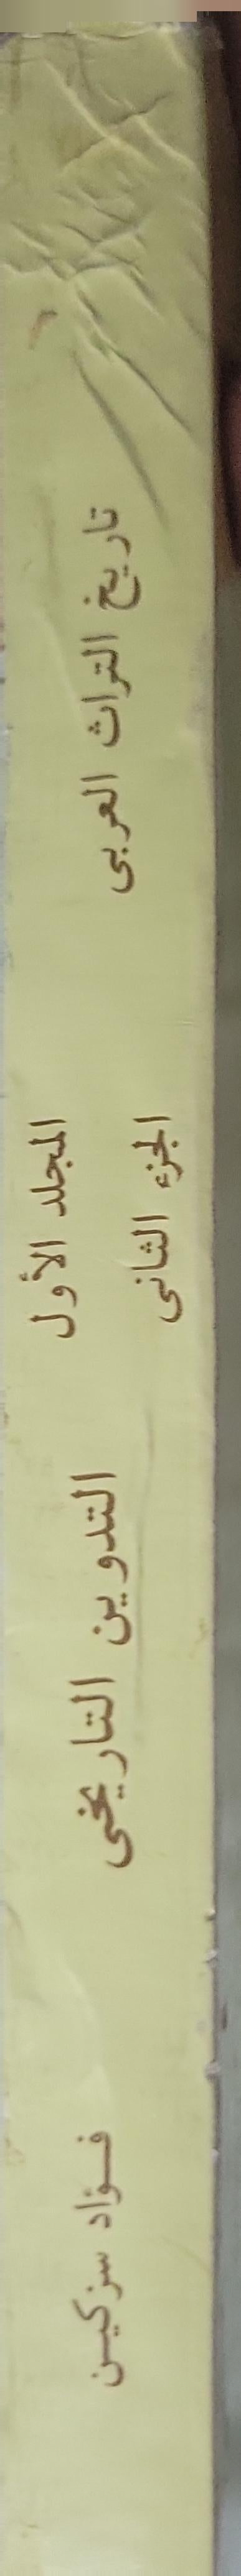 تاريخ التراث العربى
المجلد الأول
الجزء الثانى
التدوين التاريخى
فؤاد سزكين